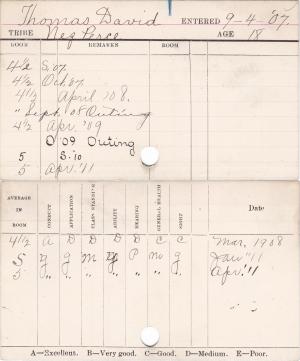 Thomas David ENTERED 9-4-'07
TRIBE Nez Perce AGE 18
ROOM REMARKS ROOM
4½ S.'07.
4½ Oct.'07.
4½ April '08.
" Sept. '08 Outing
4½ Apr. '09
O '09 Outing
5 S.10
5 Apr.'11
AVERAGE IN ROOM CONDUCT APPLICATION CLASS STANDING ABILITY READING GENERAL HEALTH SIGHT Date
4½ A D D D D C C Mar. 1908
5 g g m g P m g Jan "11
5 " " " " " " " Apr. '11
A—Excellent. B—Very good. C—Good. D—Medium. E—Poor.